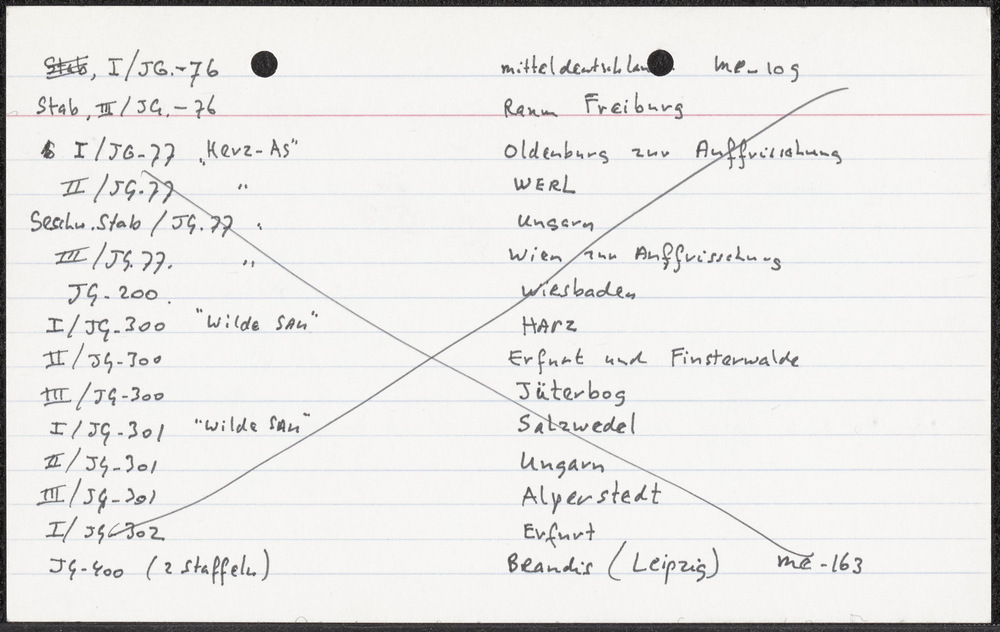 Stab, I/JG.-76 mitteldeutschlan me-109
Stab, III/JG.-76 Raum Freiburg
I/JG-77 „Herz-As" Oldenburg zur Auffrischung
II/JG.77 " WERL
Geschw.Stab/JG.77 " Ungarn
III/JG.77. " Wien zur Auffrischung
JG-200. Wiesbaden
I/JG-300 "Wilde SAu" HArz
II/JG-300 Erfurt und Finsterwalde
III/JG-300 Jüterbog
I/JG-301 "Wilde SAu" Salzwedel
II/JG-301 Ungarn
III/JG-301 Alperstedt
I/JG-302 Erfurt
JG-400 (2 Staffeln) Brandis (Leipzig) me-163